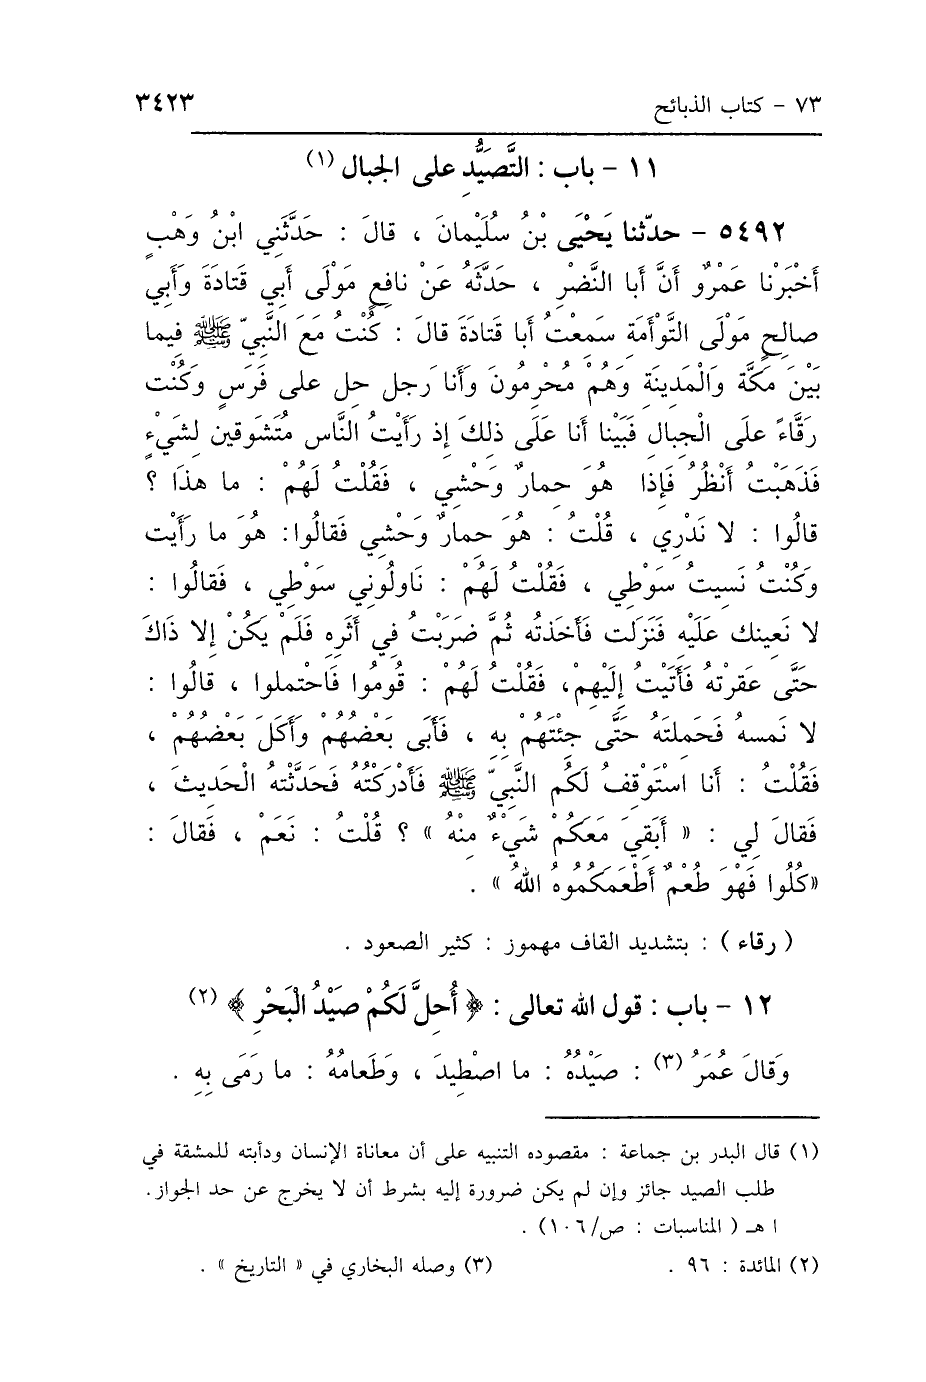 ٧٣ - كتاب الذبائح ٣٤٢٣
١١ - باب : التَّصَيُّدِ على الجبال (١)
٥٤٩٢ - حدّثنا يَحْيَى بْنُ سُلَيْمانَ ، قالَ : حَدَّثَنِي ابْنُ وَهْبٍ
أَخْبَرْنا عَمْروٌ أَنَّ أَبا النَّضْرِ ، حَدَّثَهُ عَنْ نافِعٍ مَوْلَى أَبِي قَتادَةَ وَأَبِي
صالِحٍ مَوْلَى التَّوْأَمَةِ سَمِعْتُ أَبا قَتادَةَ قالَ : كُنْتُ مَعَ النَّبِيِّ ﷺ فِيما
بَيْنَ مَكَّةَ وَالْمَدِينَةِ وَهُمْ مُحْرِمُونَ وَأَنا رَجل حل على فَرَسٍ وَكُنْت
رَقَّاءً علَى الْجِبالِ فَبَيْنا أَنا عَلَى ذلِكَ إذ رَأَيْتُ النَّاس مُتَشوقين لِشَيْءٍ
فَذَهَبْتُ أَنْظُرُ فَإِذا هُوَ حِمارٌ وَحْشِي ، فَقُلْتُ لَهُمْ : ما هذَا ؟
قالُوا : لا نَدْرِي ، قُلْتُ : هُوَ حِمارٌ وَحْشِي فَقالُوا: هُوَ ما رَأَيْت
وَكُنْتُ نَسِيتُ سَوْطِي ، فَقُلْتُ لَهُمْ : نَاوِلُونِي سَوْطِي ، فَقالُوا :
لا نَعِينك عَلَيْهِ فَنَزَلت فَأَخَذتُه ثُمَّ ضَرَبْتُ فِي أَثَرِهِ فَلَمْ يَكُنْ إلا ذَاكَ
حَتَّى عَقرْتهُ فَأَتَيْتُ إِلَيْهِمْ، فَقُلْتُ لَهُمْ : قُومُوا فَاحْتملوا ، قالُوا :
لا نَمسهُ فَحَمِلتَهُ حَتَّى جِئْتَهُمْ بِهِ ، فَأَبَى بَعْضُهُمْ وَأَكَلَ بَعْضهُمْ ،
فَقُلْتُ : أَنا اسْتَوْقِفُ لَكُم النَّبِيّ ﷺ فَأَدْرَكْتُهُ فَحَدَّثْتهُ الْحَدِيثَ ،
فَقالَ لِي : « أَبَقِيَ مَعَكُمْ شَيْءٌ مِنْهُ » ؟ قُلْتُ : نَعَمْ ، فَقالَ :
«كُلُوا فَهْوَ طُعْمٌ أَطْعَمَكُمُوهُ اللهُ » .
( رقاء ) : بتشديد القاف مهموز : كثير الصعود .
١٢ - باب : قول الله تعالى : ﴿ أُحِلَّ لَكُمْ صَيْدُ الْبَحْرِ ﴾ (٢)
وَقالَ عُمَرُ (٣) : صَيْدُهُ : ما اصْطِيدَ ، وَطَعامُهُ : ما رَمَى بِهِ .
(١) قال البدر بن جماعة : مقصوده التنبيه على أن معاناة الإنسان ودأبته للمشقة في
طلب الصيد جائز وإن لم يكن ضرورة إليه بشرط أن لا يخرج عن حد الجواز.
ا هـ ( المناسبات : ص/١٠٦) .
(٢) المائدة : ٩٦ . (٣) وصله البخاري في « التاريخ » .